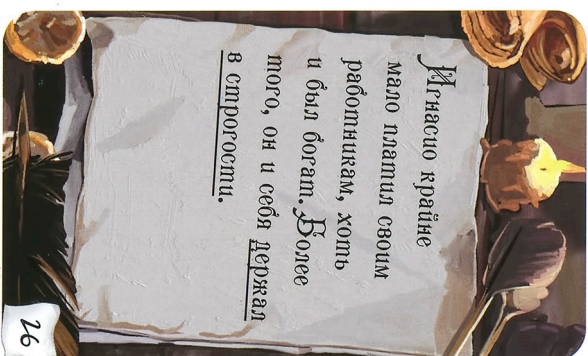 Игнасио крайне
мало платил своим
работникам, хоть
и был богат. Более
того, он и себя держал
в строгости.
26